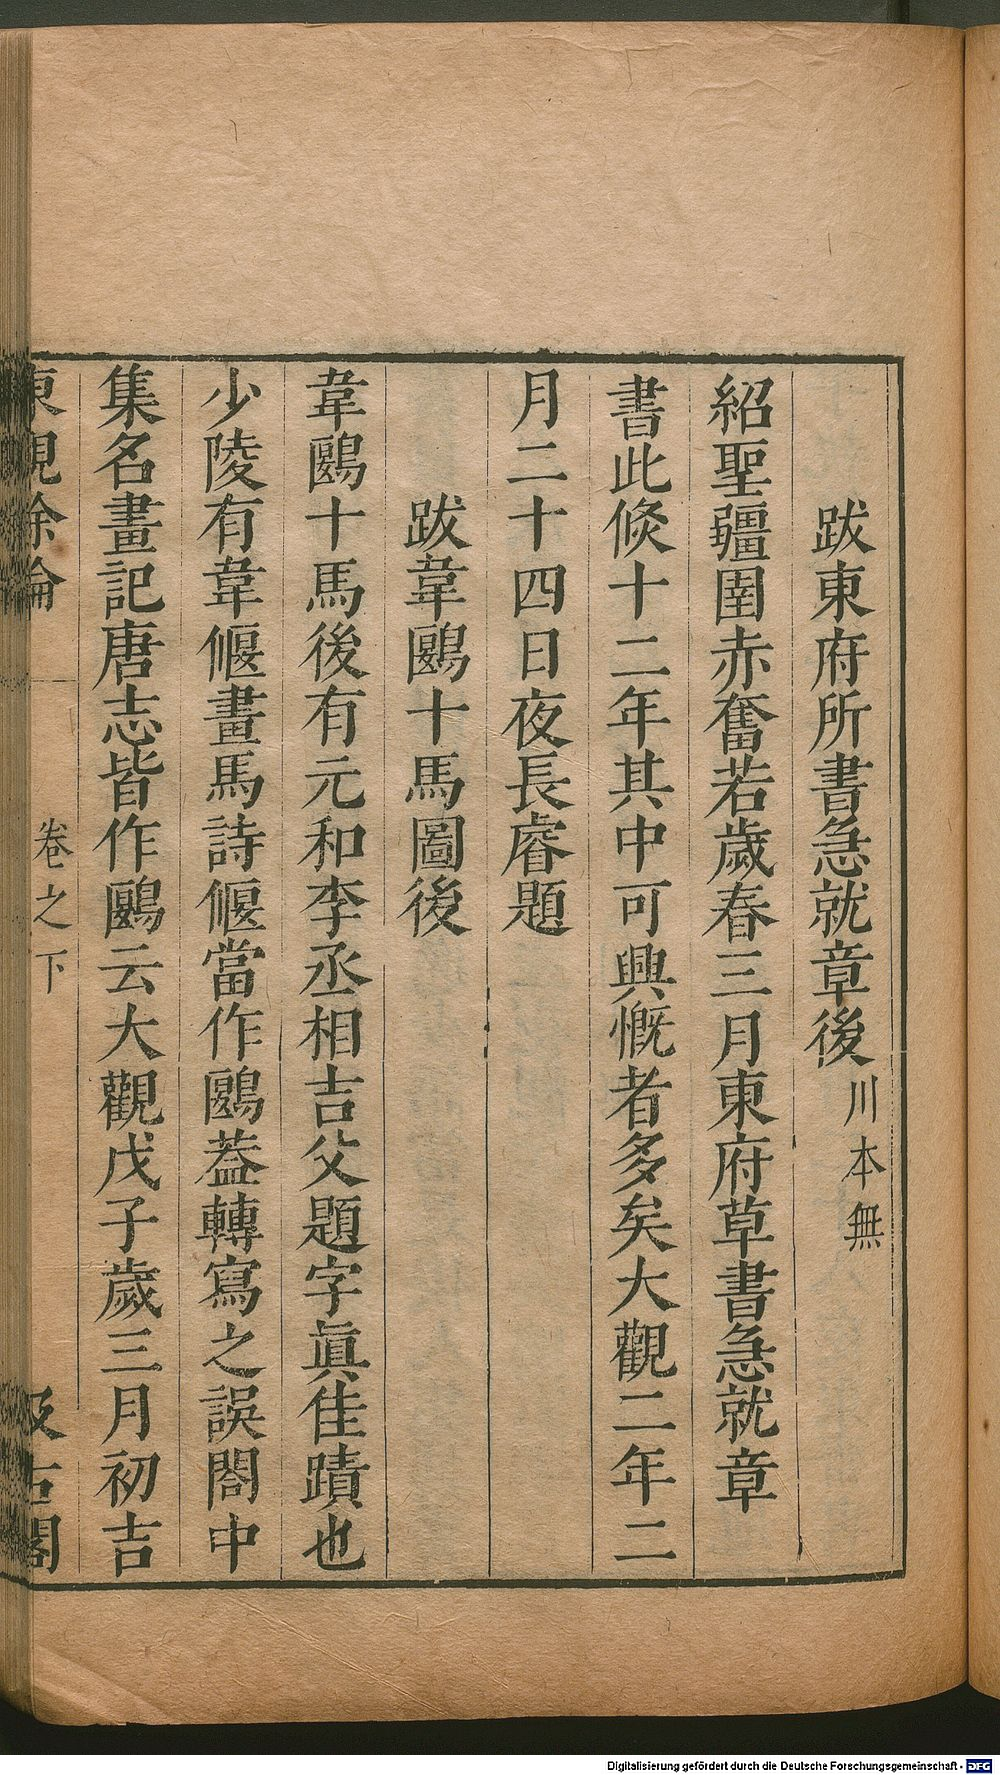 跋東府所書急就章後川本無
紹聖疆圉赤奮若歲春三月東府草書急就章
書此倐十二年其中可興慨者多矣大觀二年二
月二十四日夜長睿題
跋韋鷗十馬圖後
韋鷗十馬後有元和李丞相吉父題字眞佳蹟也
少陵有韋偃畫馬詩偃當作鷗葢轉寫之誤閤中
集名畫記唐志皆作鷗云大觀戊子歲三月初吉
東觀餘論 卷之下 汲古閣
Digitalisierung gefördert durch die Deutsche Forschungsgemeinschaft - DFG